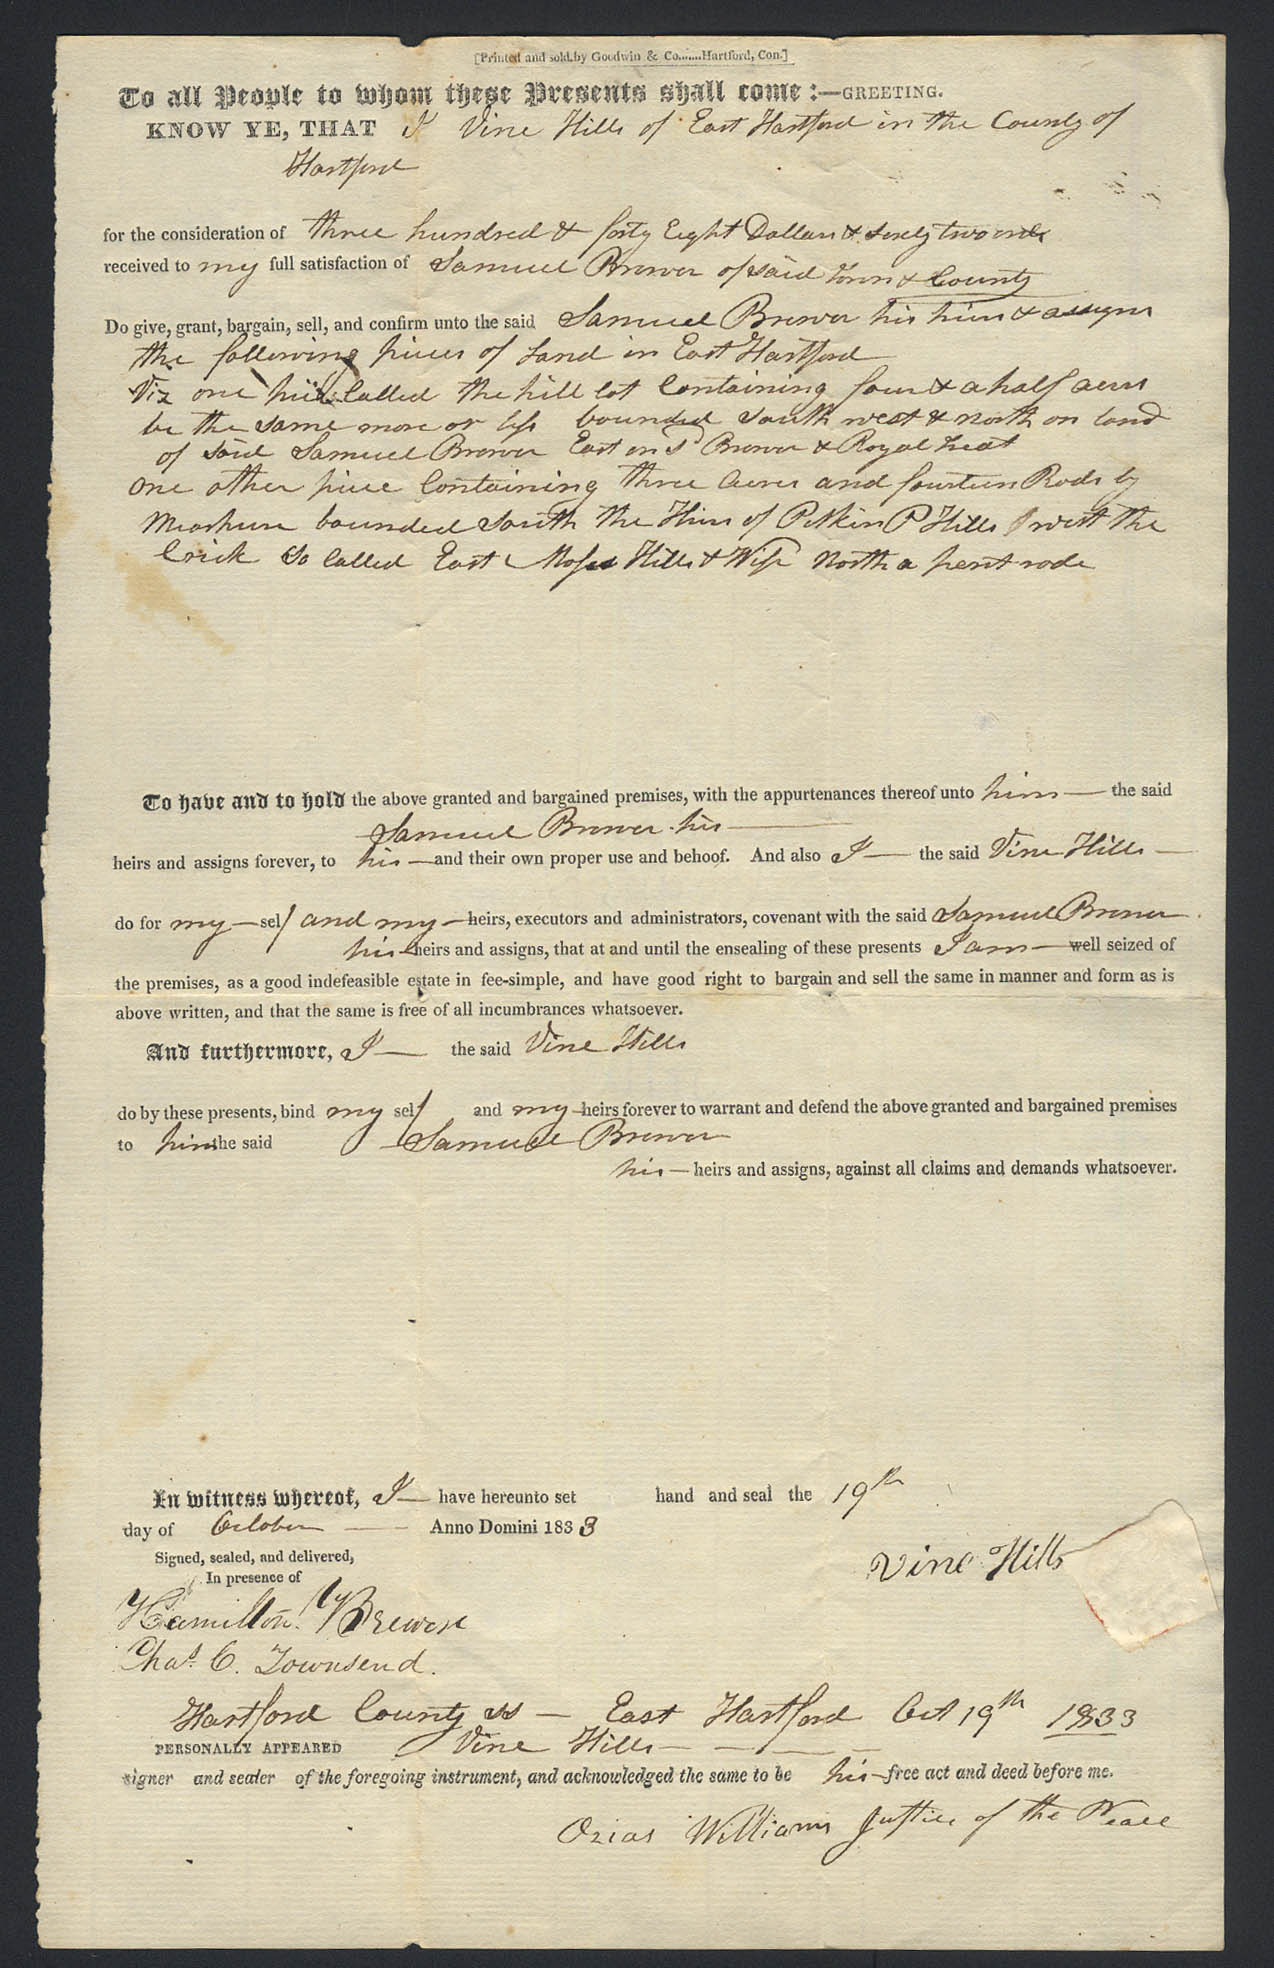 [Printed and sold by Goodwin & Co.......Hartford, Con.]
To all People to whom these Presents shall come:—GREETING.
KNOW YE, THAT I Vine Hills of East Hartford in the County of
Hartford
for the consideration of three hundred & forty Eight Dollars & sixty two cents
received to my full satisfaction of Samuel Brewer of said Town & County
Do give, grant, bargain, sell, and confirm unto the said Samuel Brewer his heirs & assigns
the following pieces of Land in East Hartford
Viz one piece Called the hill lot Containing four & a half acres
be the same more or less bounded South west & north on land
of said Samuel Brewer East on Sd Brewer & Royal
one other piece Containing three acres and fourteen Rods by
Meashure bounded South the Heirs of Pitkin P Hills west the
Crick so Called East Moses Hills & Wife North a pent rode
To have and to hold the above granted and bargained premises, with the appurtenances thereof unto him — the said
Samuel Brewer his
heirs and assigns forever, to his — and their own proper use and behoof. And also I — the said Vine Hills —
do for my — self and my — heirs, executors and administrators, covenant with the said Samuel Brewer
his heirs and assigns, that at and until the ensealing of these presents I am — well seized of
the premises, as a good indefeasible estate in fee-simple, and have good right to bargain and sell the same in manner and form as is
above written, and that the same is free of all incumbrances whatsoever.
And furthermore, I — the said Vine Hills
do by these presents, bind my self and my heirs forever to warrant and defend the above granted and bargained premises
to him the said Samuel Brewer
his — heirs and assigns, against all claims and demands whatsoever.
In witness whereof, I — have hereunto set hand and seal the 19th
day of October — Anno Domini 1833
Signed, sealed, and delivered,
In presence of
Vine Hills
Hamilton Brewer
Chas. C. Townsend.
Hartford County ss — East Hartford Oct 19th 1833
PERSONALLY APPEARED Vine Hills — — — —
signer and sealer of the foregoing instrument, and acknowledged the same to be his free act and deed before me.
Ozias Williams Justice of the Peace